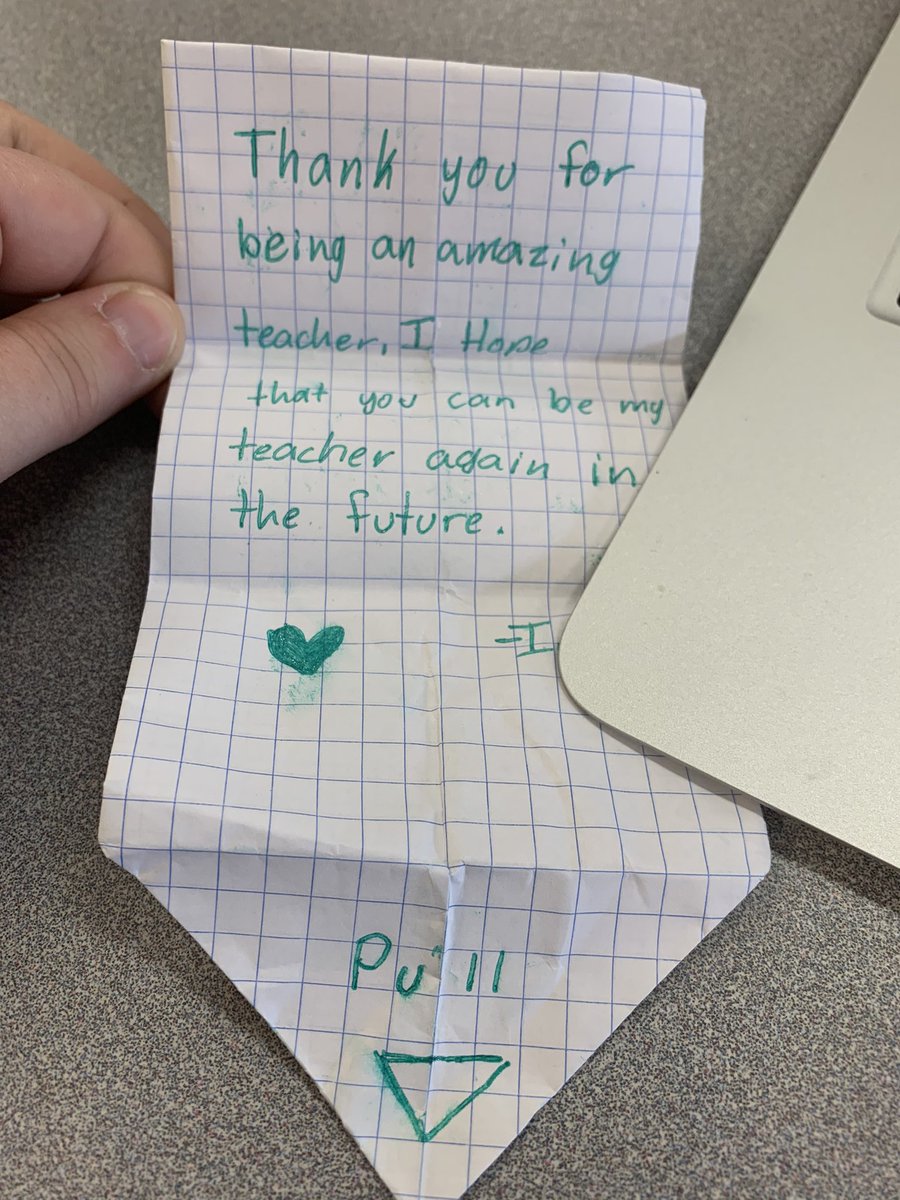 Thank you for
being an amazing
teacher, I Hope
that you can be my
teacher again in
the future.
-I
Pull